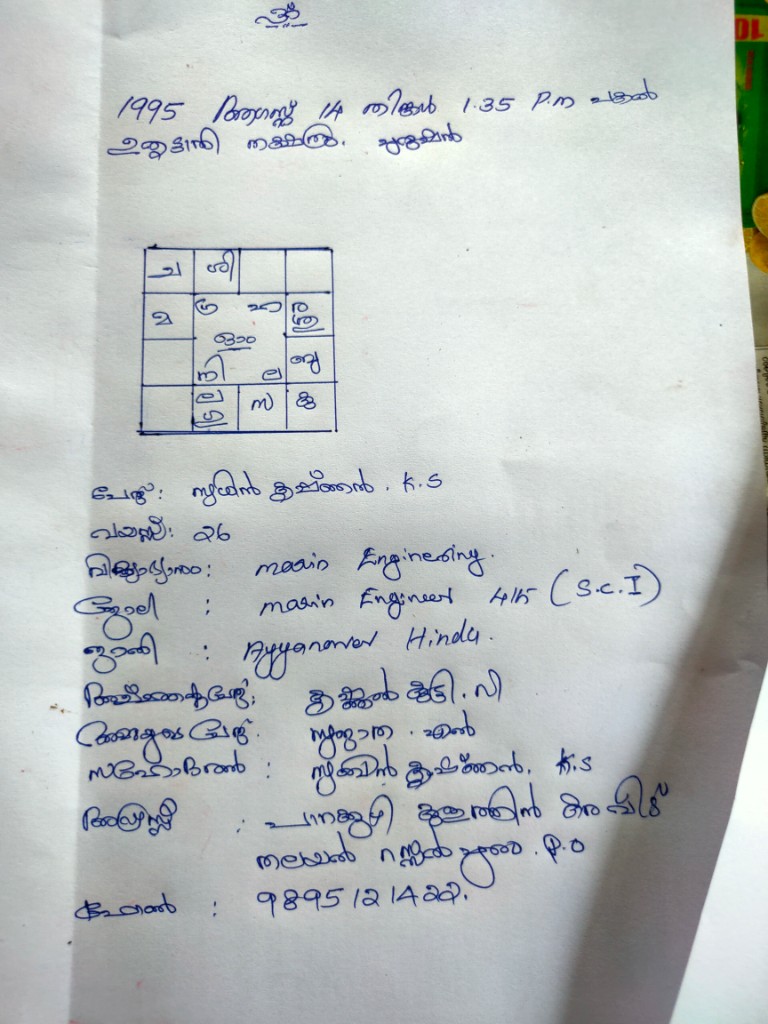 ഓം
1995 ആഗസ്റ്റ് 14 തിങ്കൾ 1.35 P.m പകൽ
ഉതൃട്ടാതി നക്ഷത്രം. പുരുഷൻ
ച ശി
മ ഗ്ര ഹ ര ശു
ഓം
നി ല ബു
ല ഗ്ന സ കു
പേര് : സുബിൻ കൃഷ്ണൻ . K.S
വയസ്സ് : 26
വിദ്യാഭ്യാസം : marin Engineering.
ജോലി : marin Engineer 4th (S.C.I)
ജാതി : Ayyanaver Hindu.
അച്ഛന്റെ പേര് : കൃഷ്ണൻ കുട്ടി . വി
അമ്മയുടെ പേര് . സുജാത . എൻ
സഹോദരൻ : സുജിൻ കൃഷ്ണൻ . K.S
അഡ്രസ്സ് :
തലയൽ P.O
ഫോൺ : 9895121422.